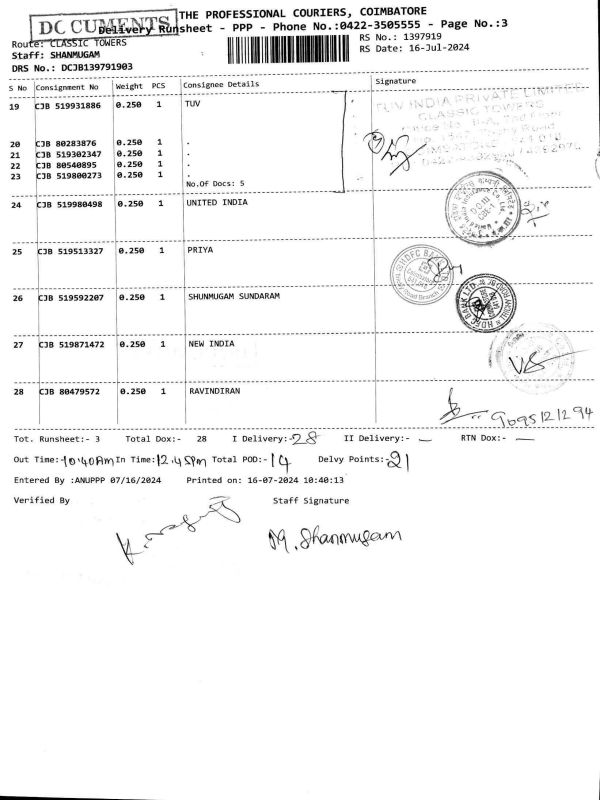 THE PROFESSIONAL COURIERS, COIMBATORE
DOCUMENTS
Delivery Runsheet - PPP - Phone No.:0422-3505555 - Page No.:3
Route: CLASSIC TOWERS
RS No.: 1397919
Staff: SHANMUGAM
RS Date: 16-Jul-2024
DRS No.: DCJB139791903
S No Consignment No Weight PCS Consignee Details Signature
19 CJB 519931886 0.250 1 TUV
TUV INDIA PRIVATE LIMITED
CLASSIC TOWERS
20 CJB 80283876 0.250 1 .
21 CJB 519302347 0.250 1 .
22 CJB 80540895 0.250 1 .
23 CJB 519800273 0.250 1 .
No.Of Docs: 5
24 CJB 519980498 0.250 1 UNITED INDIA
25 CJB 519513327 0.250 1 PRIYA
HDFC BANK
26 CJB 519592207 0.250 1 SHUNMUGAM SUNDARAM
HDFC BANK LTD
27 CJB 519871472 0.250 1 NEW INDIA
28 CJB 80479572 0.250 1 RAVINDIRAN
9095121294
Tot. Runsheet:- 3 Total Dox:- 28 I Delivery:-28 II Delivery:- — RTN Dox:- —
Out Time:-10:40Am In Time:12.45pm Total POD:-14 Delvy Points:-21
Entered By :ANUPPP 07/16/2024 Printed on: 16-07-2024 10:40:13
Verified By Staff Signature
M. Shanmugam